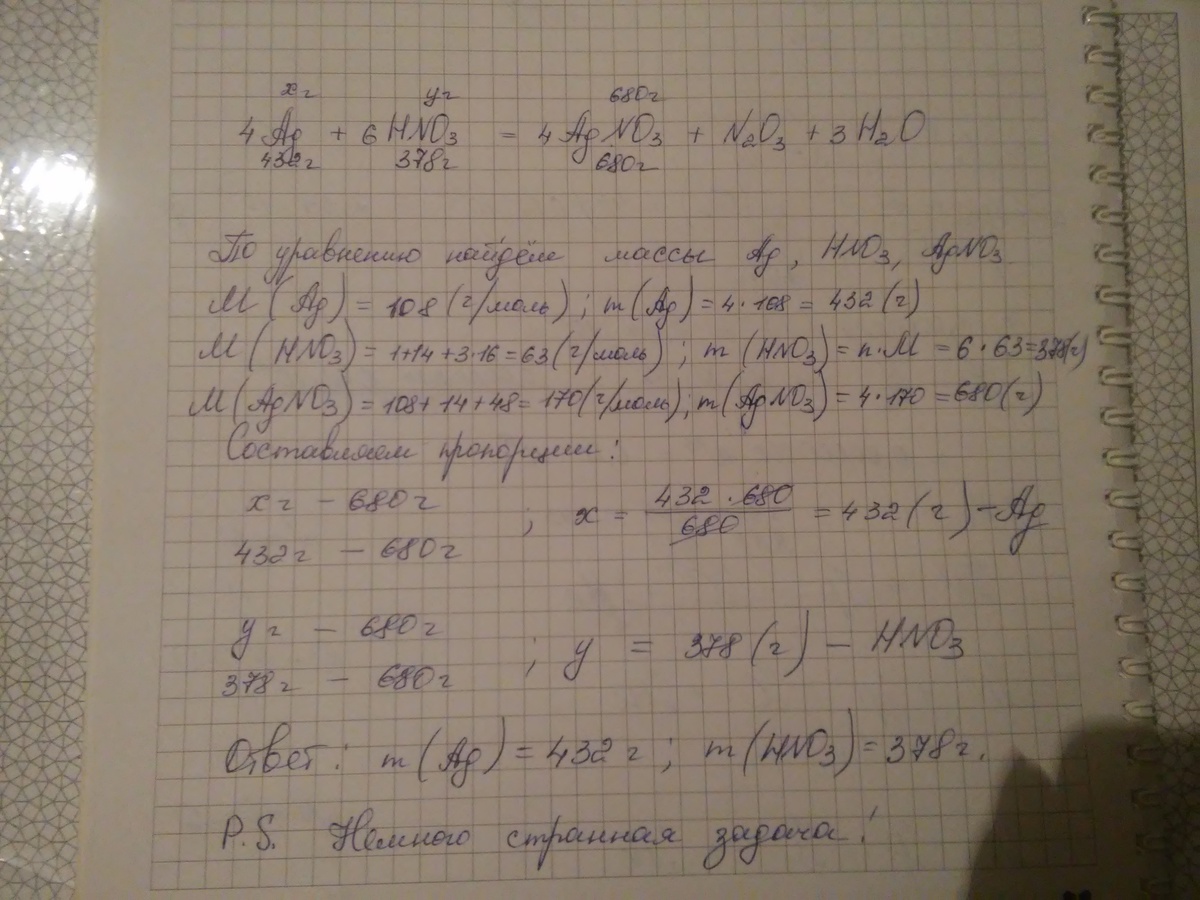 xг yг 680г
4Ag + 6HNO₃ = 4AgNO₃ + N₂O₃ + 3H₂O
432г 378г 680г
По уравнению найдём массы Ag, HNO₃, AgNO₃
M(Ag) = 108 (г/моль); m(Ag) = 4·108 = 432 (г)
M(HNO₃) = 1+14+3·16 = 63 (г/моль); m(HNO₃) = n·M = 6·63 = 378(г)
M(AgNO₃) = 108+14+48 = 170 (г/моль); m(AgNO₃) = 4·170 = 680(г)
Составляем пропорции:
xг – 680г
432г – 680г ; x = 432·680/680 = 432 (г) – Ag
yг – 680г
378г – 680г ; y = 378 (г) – HNO₃
Ответ: m(Ag) = 432г; m(HNO₃) = 378г.
P.S. Немного странная задача!